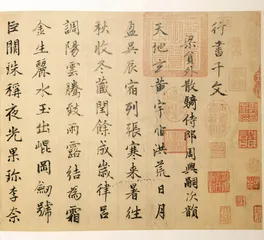 行書千文
梁員外散騎侍郎周興嗣次韻
天地玄黃宇宙洪荒日月
盈昃辰宿列張寒来暑往
秋收冬蔵閏餘成歲律呂
調陽雲騰致雨露結為霜
金生麗水玉出崐岡劒號
巨闕珠稱夜光果珎李柰